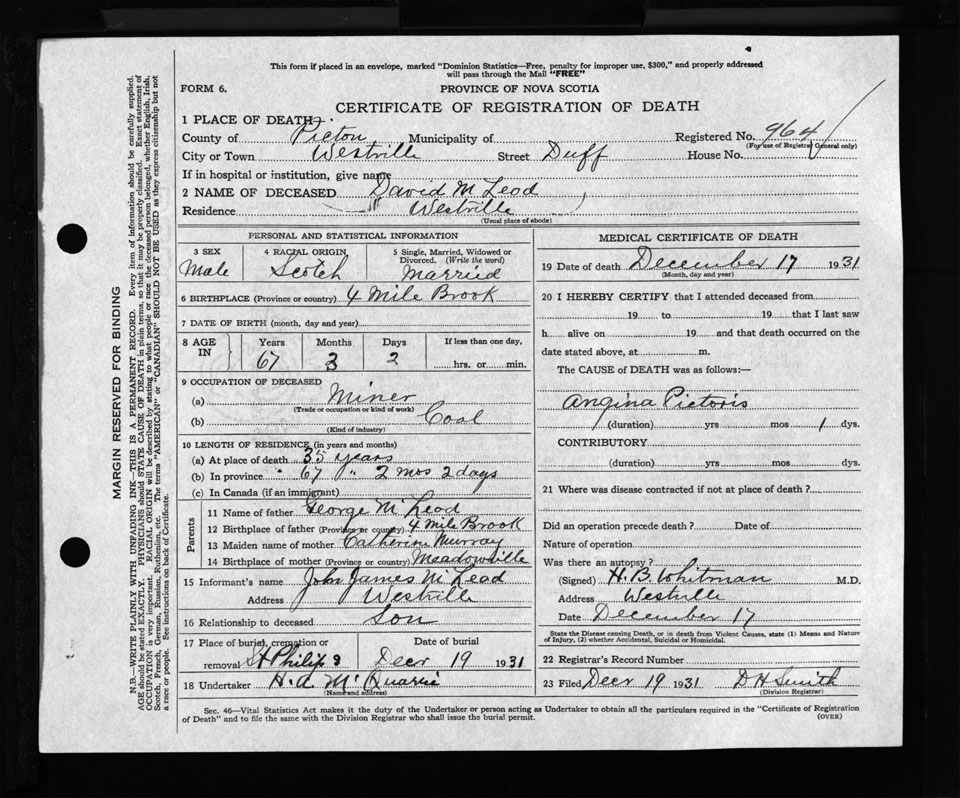 This form if placed in an envelope, marked "Dominion Statistics—Free, penalty for improper use, $300," and properly addressed
will pass through the Mail "FREE"
FORM 6.
PROVINCE OF NOVA SCOTIA
CERTIFICATE OF REGISTRATION OF DEATH
1 PLACE OF DEATH—
County of Picton Municipality of Registered No. 964
(For use of Registrar General only)
City or Town Westville Street Duff House No.
If in hospital or institution, give name
2 NAME OF DECEASED David McLeod
Residence Westville
(Usual place of abode)
PERSONAL AND STATISTICAL INFORMATION
3 SEX 4 RACIAL ORIGIN 5 Single, Married, Widowed or
Divorced. (Write the word)
Male Scotch Married
6 BIRTHPLACE (Province or country) 4 Mile Brook
7 DATE OF BIRTH (month, day and year)
8 AGE IN Years Months Days If less than one day,
67 3 2 hrs. or min.
9 OCCUPATION OF DECEASED
(a) Miner
(Trade or occupation or kind of work)
(b) Coal
(Kind of industry)
10 LENGTH OF RESIDENCE (in years and months)
(a) At place of death 35 years
(b) In province 67 " 2 mos 2 days
(c) In Canada (if an immigrant)
Parents
11 Name of father George McLeod
12 Birthplace of father (Province or country) 4 Mile Brook
13 Maiden name of mother Catherine Murray
14 Birthplace of mother (Province or country) Meadowville
15 Informant's name John James McLeod
Address Westville
16 Relationship to deceased Son
17 Place of burial, cremation or Date of burial
removal St Philips Decr 19 1931
18 Undertaker H. A. McQuarrie
(Name and address)
MEDICAL CERTIFICATE OF DEATH
19 Date of death December 17 1931
(Month, day and year)
20 I HEREBY CERTIFY that I attended deceased from
19 to 19 that I last saw
h alive on 19 and that death occurred on the
date stated above, at m.
The CAUSE of DEATH was as follows:—
Angina Pictoris
(duration) yrs mos 1 dys.
CONTRIBUTORY
(duration) yrs mos dys.
21 Where was disease contracted if not at place of death?
Did an operation precede death? Date of
Nature of operation
Was there an autopsy?
(Signed) H. B. Whitman M.D.
Address Westville
Date December 17
State the Disease causing Death, or in death from Violent Causes, state (1) Means and Nature
of Injury, (2) whether Accidental, Suicidal or Homicidal.
22 Registrar's Record Number
23 Filed Decr 19 1931 D H Smith
(Division Registrar)
Sec. 46—Vital Statistics Act makes it the duty of the Undertaker or person acting as Undertaker to obtain all the particulars required in the "Certificate of Registration
of Death" and to file the same with the Division Registrar who shall issue the burial permit.
(OVER)
MARGIN RESERVED FOR BINDING
N.B.—WRITE PLAINLY WITH UNFADING INK—THIS IS A PERMANENT RECORD. Every item of information should be carefully supplied.
AGE should be stated EXACTLY. PHYSICIANS should STATE CAUSE OF DEATH in plain terms, so that it may be properly classified. Exact statement of
OCCUPATION is very important. RACIAL ORIGIN will be described by stating to what people or race the deceased person belonged, whether English, Irish,
Scotch, French, German, Russian, Ruthenian, etc. The terms "AMERICAN" or "CANADIAN" SHOULD NOT BE USED as they express citizenship but not
a race or people. See instructions on back of Certificate.